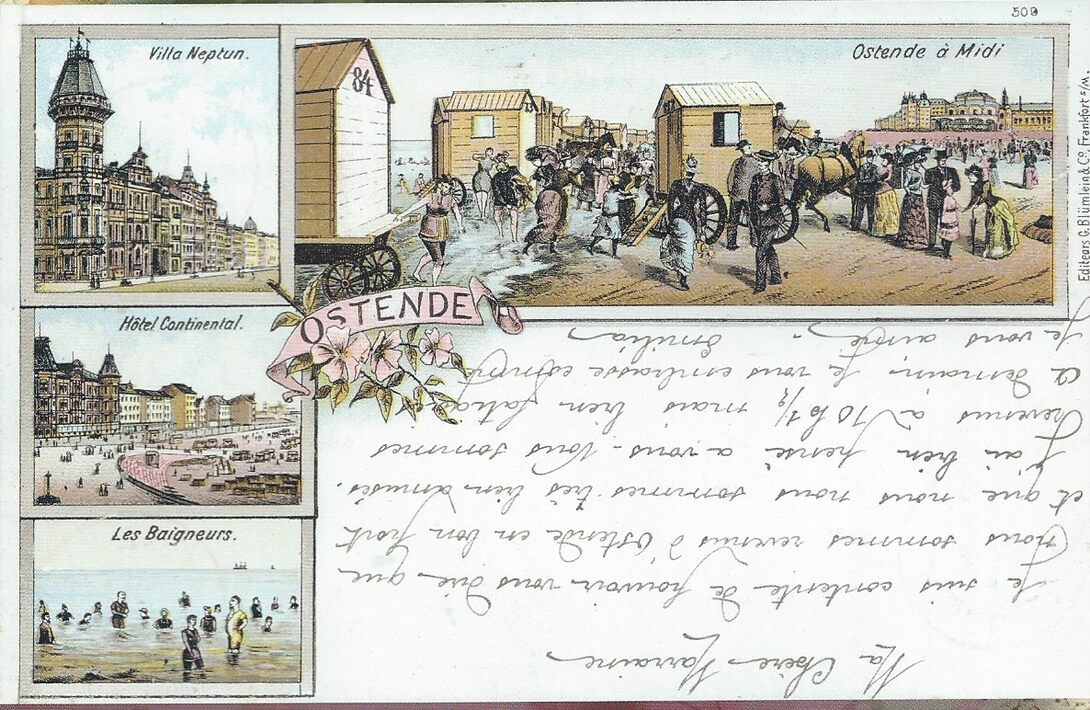 509
Villa Neptun.
Ostende à Midi
84
OSTENDE
Hôtel Continental.
Les Baigneurs.
Editeurs G. Blümlein & Co. Frankfurt s/M.
Ma Chère Marraine
Je suis contente de pouvoir vous dire que
nous sommes revenus à Ostende en bon port
et que nous nous sommes très bien amusés.
J'ai bien pensé a vous. Nous sommes
revenus à 10 h 1/2 mais bien fatigués
a demain. Je vous embrasse comme
Je vous aime.
Emilia